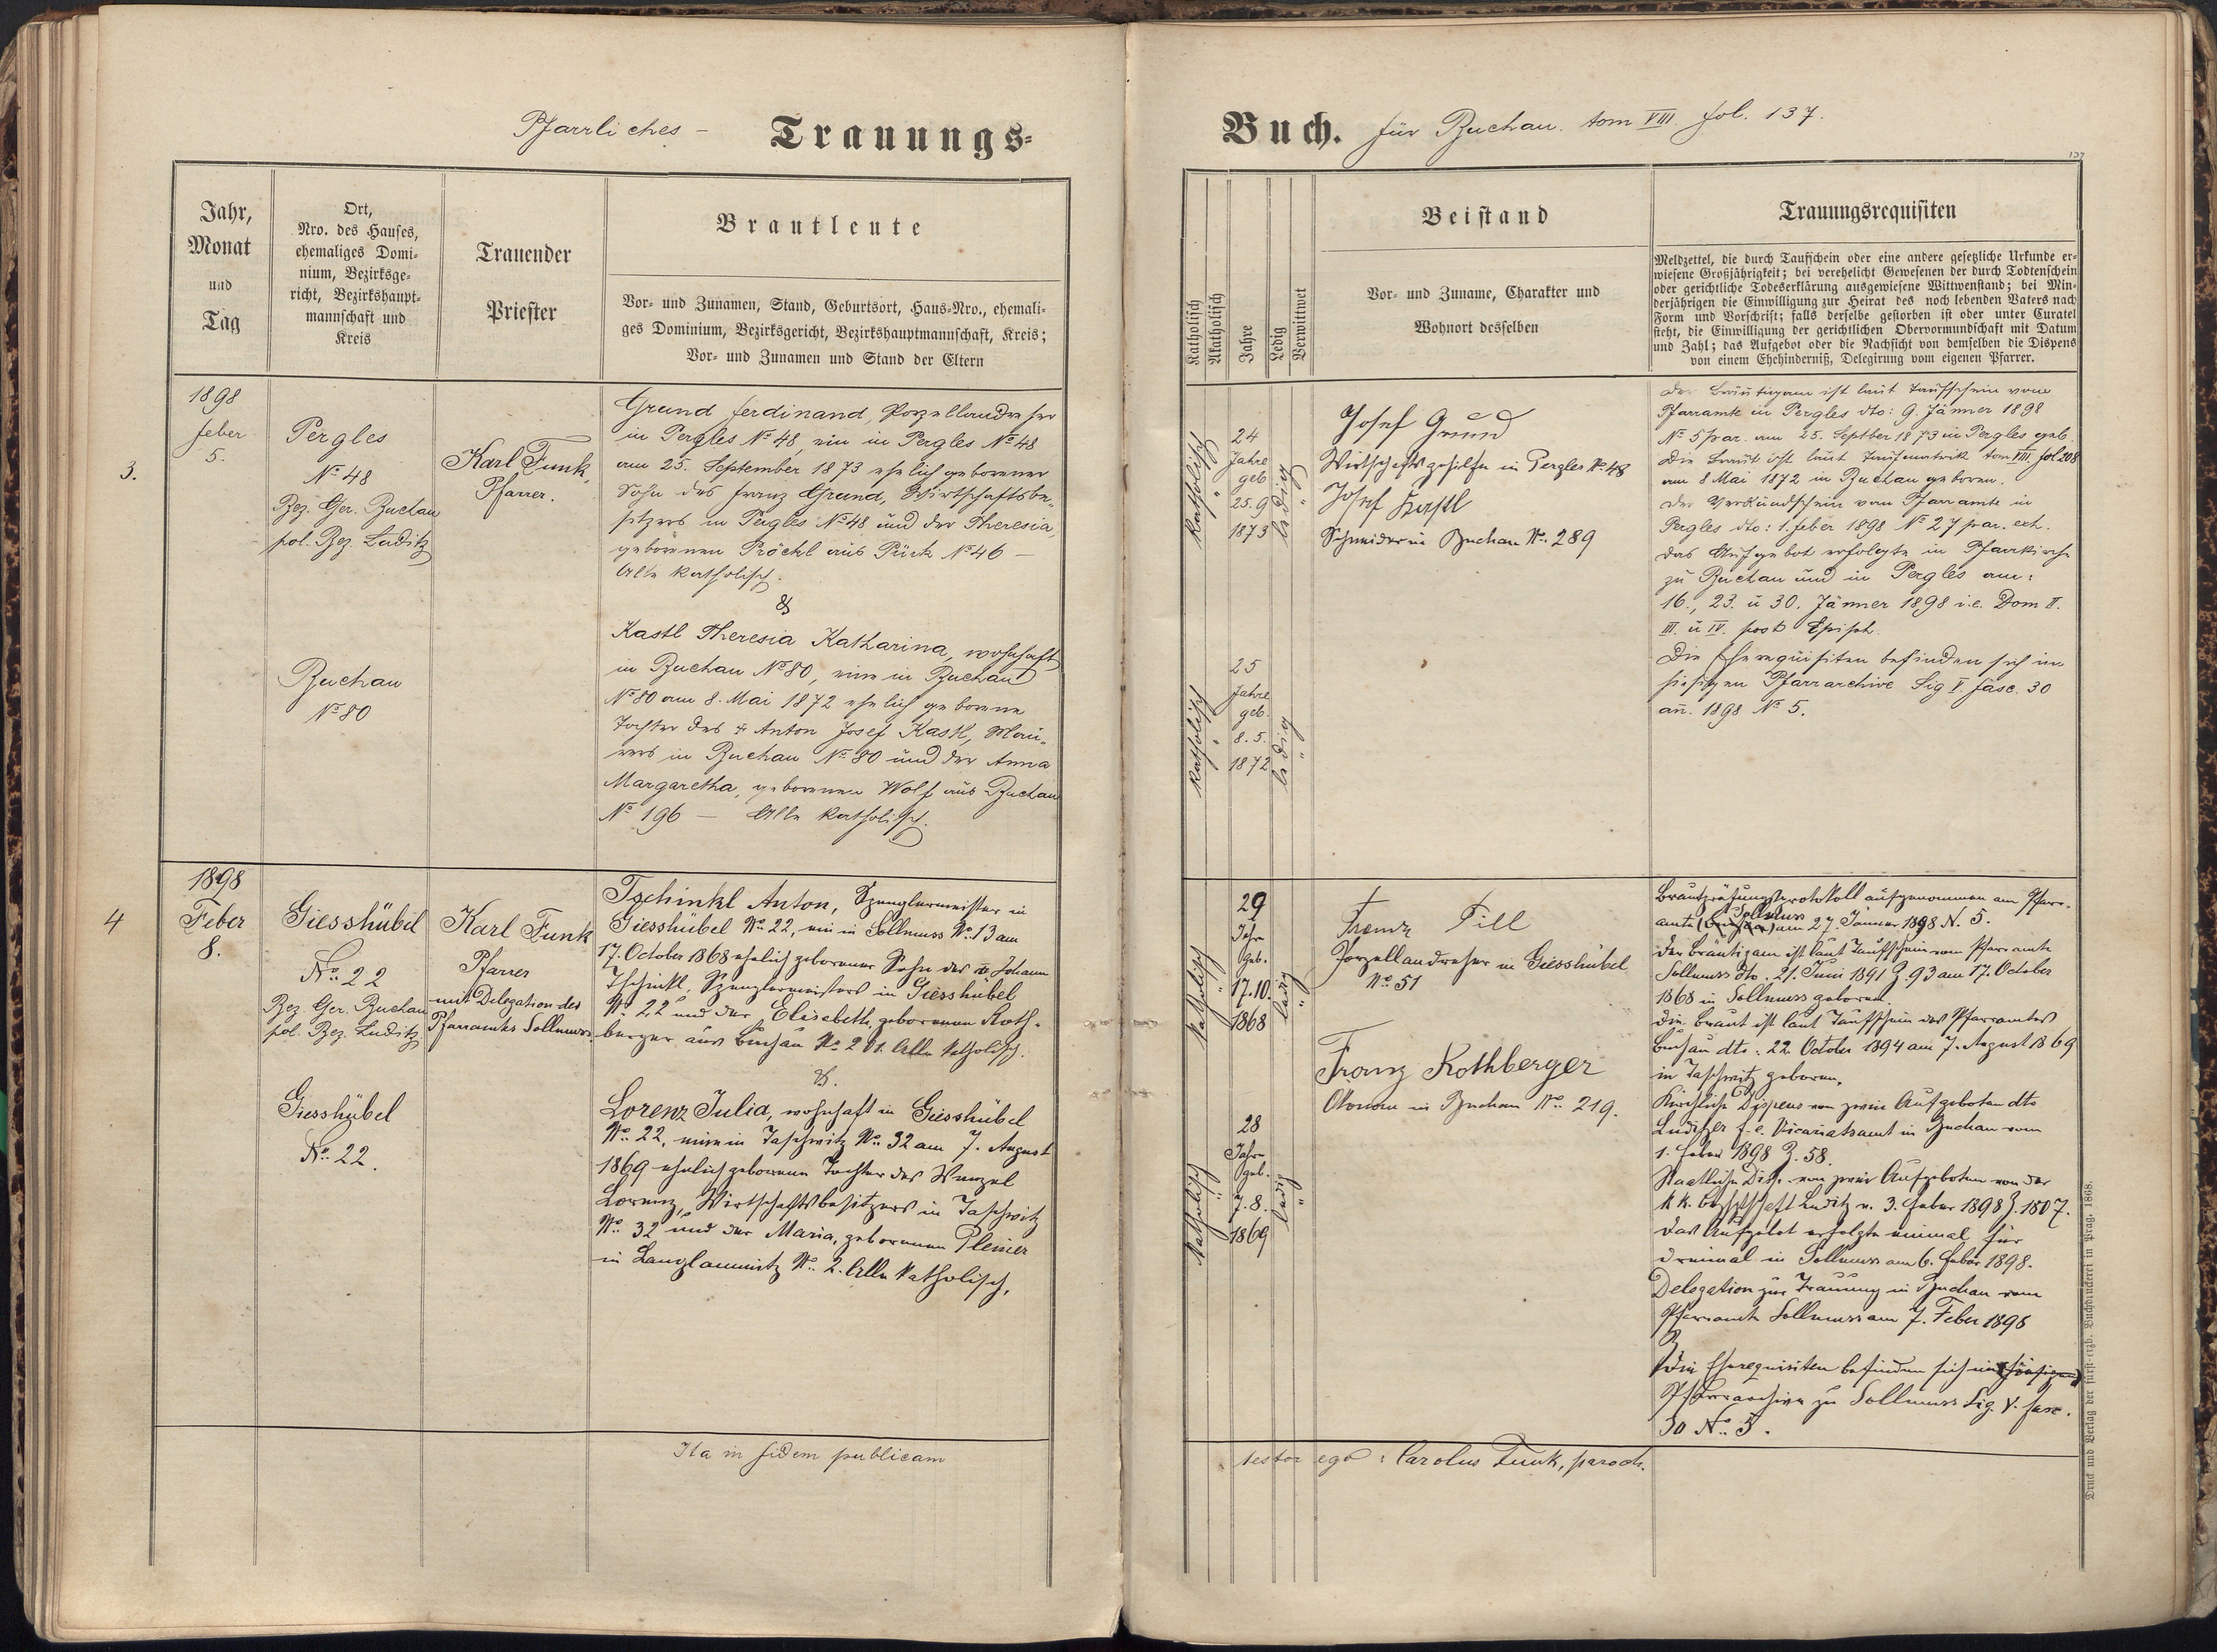 Pfarrliches - Trauungs-
Jahr,
Monat
und
Tag
Ort,
Nro. des Hauses,
ehemaliges Domi-
nium, Bezirksge-
richt, Bezirkshaupt-
mannschaft und
Kreis
Trauender
Priester
Brautleute
Vor- und Zunamen, Stand, Geburtsort, Haus-Nro., ehemali-
ges Dominium, Bezirksgericht, Bezirkshauptmannschaft, Kreis;
Vor- und Zunamen und Stand der Eltern
3.
1898
Feber
5.
Pergles
No 48
Bez. Ger. Buchau
pol. Bez. Luditz
Buchau
No 80
Karl Funk,
Pfarrer.
Grund Ferdinand, Porzellandreher
in Pergles No 48, ein in Pergles No 48
am 25. September 1873 ehelich geborener
Sohn des Franz Grund, Wirtschaftsbe-
sitzers in Pergles No 48 und der Theresia,
geborenen Pröckl aus Pürk No 46 -
Alle katholisch.
&
Kastl Theresia Katharina, wohnhaft
in Buchau No 80, eine in Buchau
No 80 am 8. Mai 1872 ehelich geborene
Tochter des † Anton Josef Kastl, Mau-
rers in Buchau No 80 und der Anna
Margaretha, geborenen Wolf aus Buchau
No 196 - Alle katholisch.
4
1898
Feber
8.
Giesshübel
No. 22
Bez. Ger. Buchau
pol. Bez. Luditz.
Giesshübel
No. 22.
Karl Funk
Pfarrer
mit Delegation des
Pfarramtes Sollmuss.
Tschinkl Anton, Spenglermeister in
Giesshübel No. 22, ein in Sollmuss No. 13 am
17. October 1868 ehelich geborener Sohn des Johann
Tschinkl, Spenglermeisters in Giesshübel
No. 22 und der Elisabeth, geborenen Roth-
berger aus Buchau No. 201. Alle katholisch.
&.
Lorenz Julia, wohnhaft in Giesshübel
No. 22, eine in Taschwitz No. 32 am 7. August
1869 ehelich geborene Tochter des Wenzel
Lorenz, Wirtschaftsbesitzers in Taschwitz
No. 32 und der Maria, geborenen Pleiner
in Langlammitz No. 2. Alle katholisch.
Ita in fidem publicam
Buch. für Buchau. tom VIII fol. 137.
137
Katholisch
Akatholisch
Jahre
Ledig
Verwittwet
Beistand
Vor- und Zuname, Charakter und
Wohnort desselben
Trauungsrequisiten
Meldzettel, die durch Taufschein oder eine andere gesetzliche Urkunde er-
wiesene Großjährigkeit; bei verehelicht Gewesenen der durch Todtenschein
oder gerichtliche Todeserklärung ausgewiesene Wittwenstand; bei Min-
derjährigen die Einwilligung zur Heirat des noch lebenden Vaters nach
Form und Vorschrift; falls derselbe gestorben ist oder unter Curatel
steht, die Einwilligung der gerichtlichen Obervormundschaft mit Datum
und Zahl; das Aufgebot oder die Nachsicht von demselben die Dispens
von einem Ehehinderniß, Delegirung vom eigenen Pfarrer.
Katholisch
"
24
Jahre
geb
25. 9
1873
ledig
"
Josef Grund
Wirtschaftsgehilfe in Pergles No. 48
Josef Kastl
Schneider in Buchau No. 289
Der Bräutigam ist laut Taufschein vom
Pfarramte in Pergles dto: 9. Jänner 1898
No 5 par. am 25. Septber 1873 in Pergles geb.
Die Braut ist laut Taufmatrik tom VIII fol 208
am 8 Mai 1872 in Buchau geboren.
Der Verkündschein vom Pfarramte in
Pergles dto: 1. Feber 1898 No 27 par. exh.
Das Aufgebot erfolgte in Pfarrkirche
zu Buchau und in Pergles am:
16., 23. u 30. Jänner 1898 i.e. Dom II.
III. u IV. post Epiph.
Die Eherequisiten befinden sich im
hiesigen Pfarrarchive Sig V. fasc. 30
an. 1898 No 5.
Katholisch
"
25
Jahre
geb.
8. 5.
1872
ledig
"
Katholisch
"
29
Jahre
geb.
17. 10.
1868
ledig
"
Franz Pill
Porzellandreher in Giesshübel
No. 51
Franz Rothberger
Ökonom in Buchau No. 219.
Katholisch
"
28
Jahre
geb.
7. 8.
1869
ledig
"
Brautprüfungsprotokoll aufgenommen am Pfarr-
amte Sollmuss am 27. Jänner 1898 N. 5.
Der Bräutigam ist laut Taufschein vom Pfarramte
Sollmuss dto. 21. Juni 1891 Z. 93 am 17. October
1868 in Sollmuss geboren.
Die Braut ist laut Taufschein des Pfarramtes
Buchau dto: 22. October 1894 am 7. August 1869
in Taschwitz geboren.
Kirchliche Dispens von zwei Aufgeboten dto
Luditzer f. e. Vicariatsamt in Buchau vom
1. Feber 1898 Z. 58.
Staatliche Disp. von zwei Aufgeboten von der
k k. Bezhptschaft Luditz v. 3. Feber 1898 Z. 1507.
Das Aufgebot erfolgte einmal für
dreimal in Sollmuss am 6. Feber 1898.
Delegation zur Trauung in Buchau vom
Pfarramte Sollmuss am 7. Feber 1898
Die Eherequisiten befinden sich im hiesigen
Pfarrarchive zu Sollmuss Sig. V. fasc.
30 No. 5.
testor ego: Carolus Funk, paroch.
Druck und Verlag der fürst-erzb. Buchdruckerei in Prag. 1868.